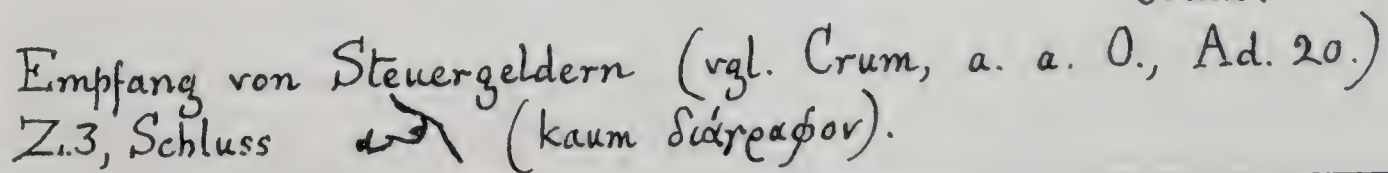 Empfang von Steuergeldern (vgl. Crum, a. a. O., Ad. 20.)
Z.3, Schluss (kaum διάγραφον).